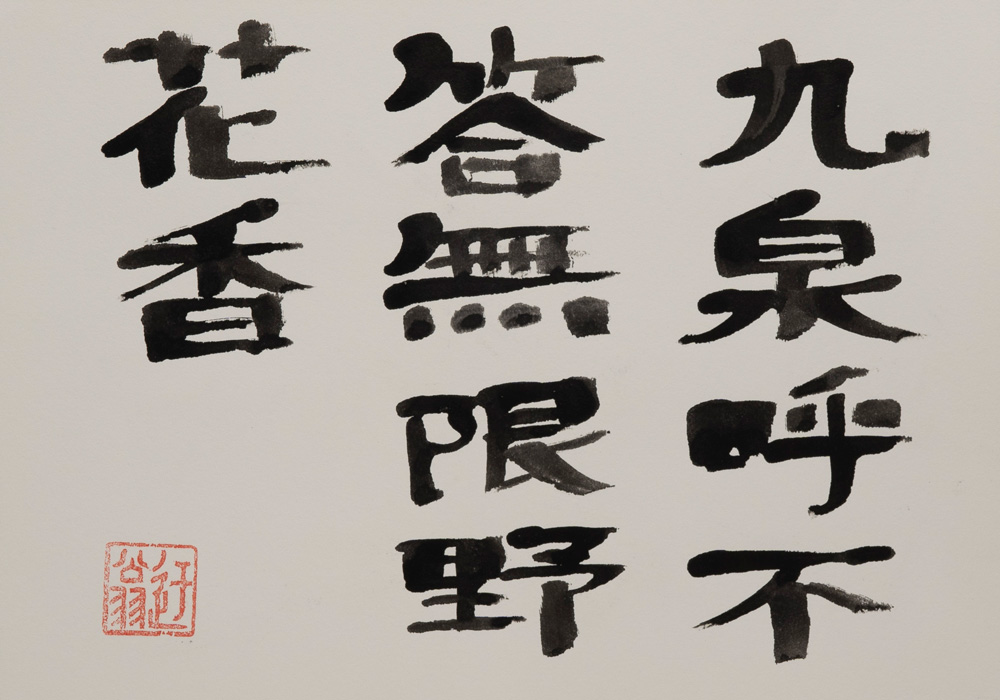 九泉呼不
答無限野
花香
迂翁